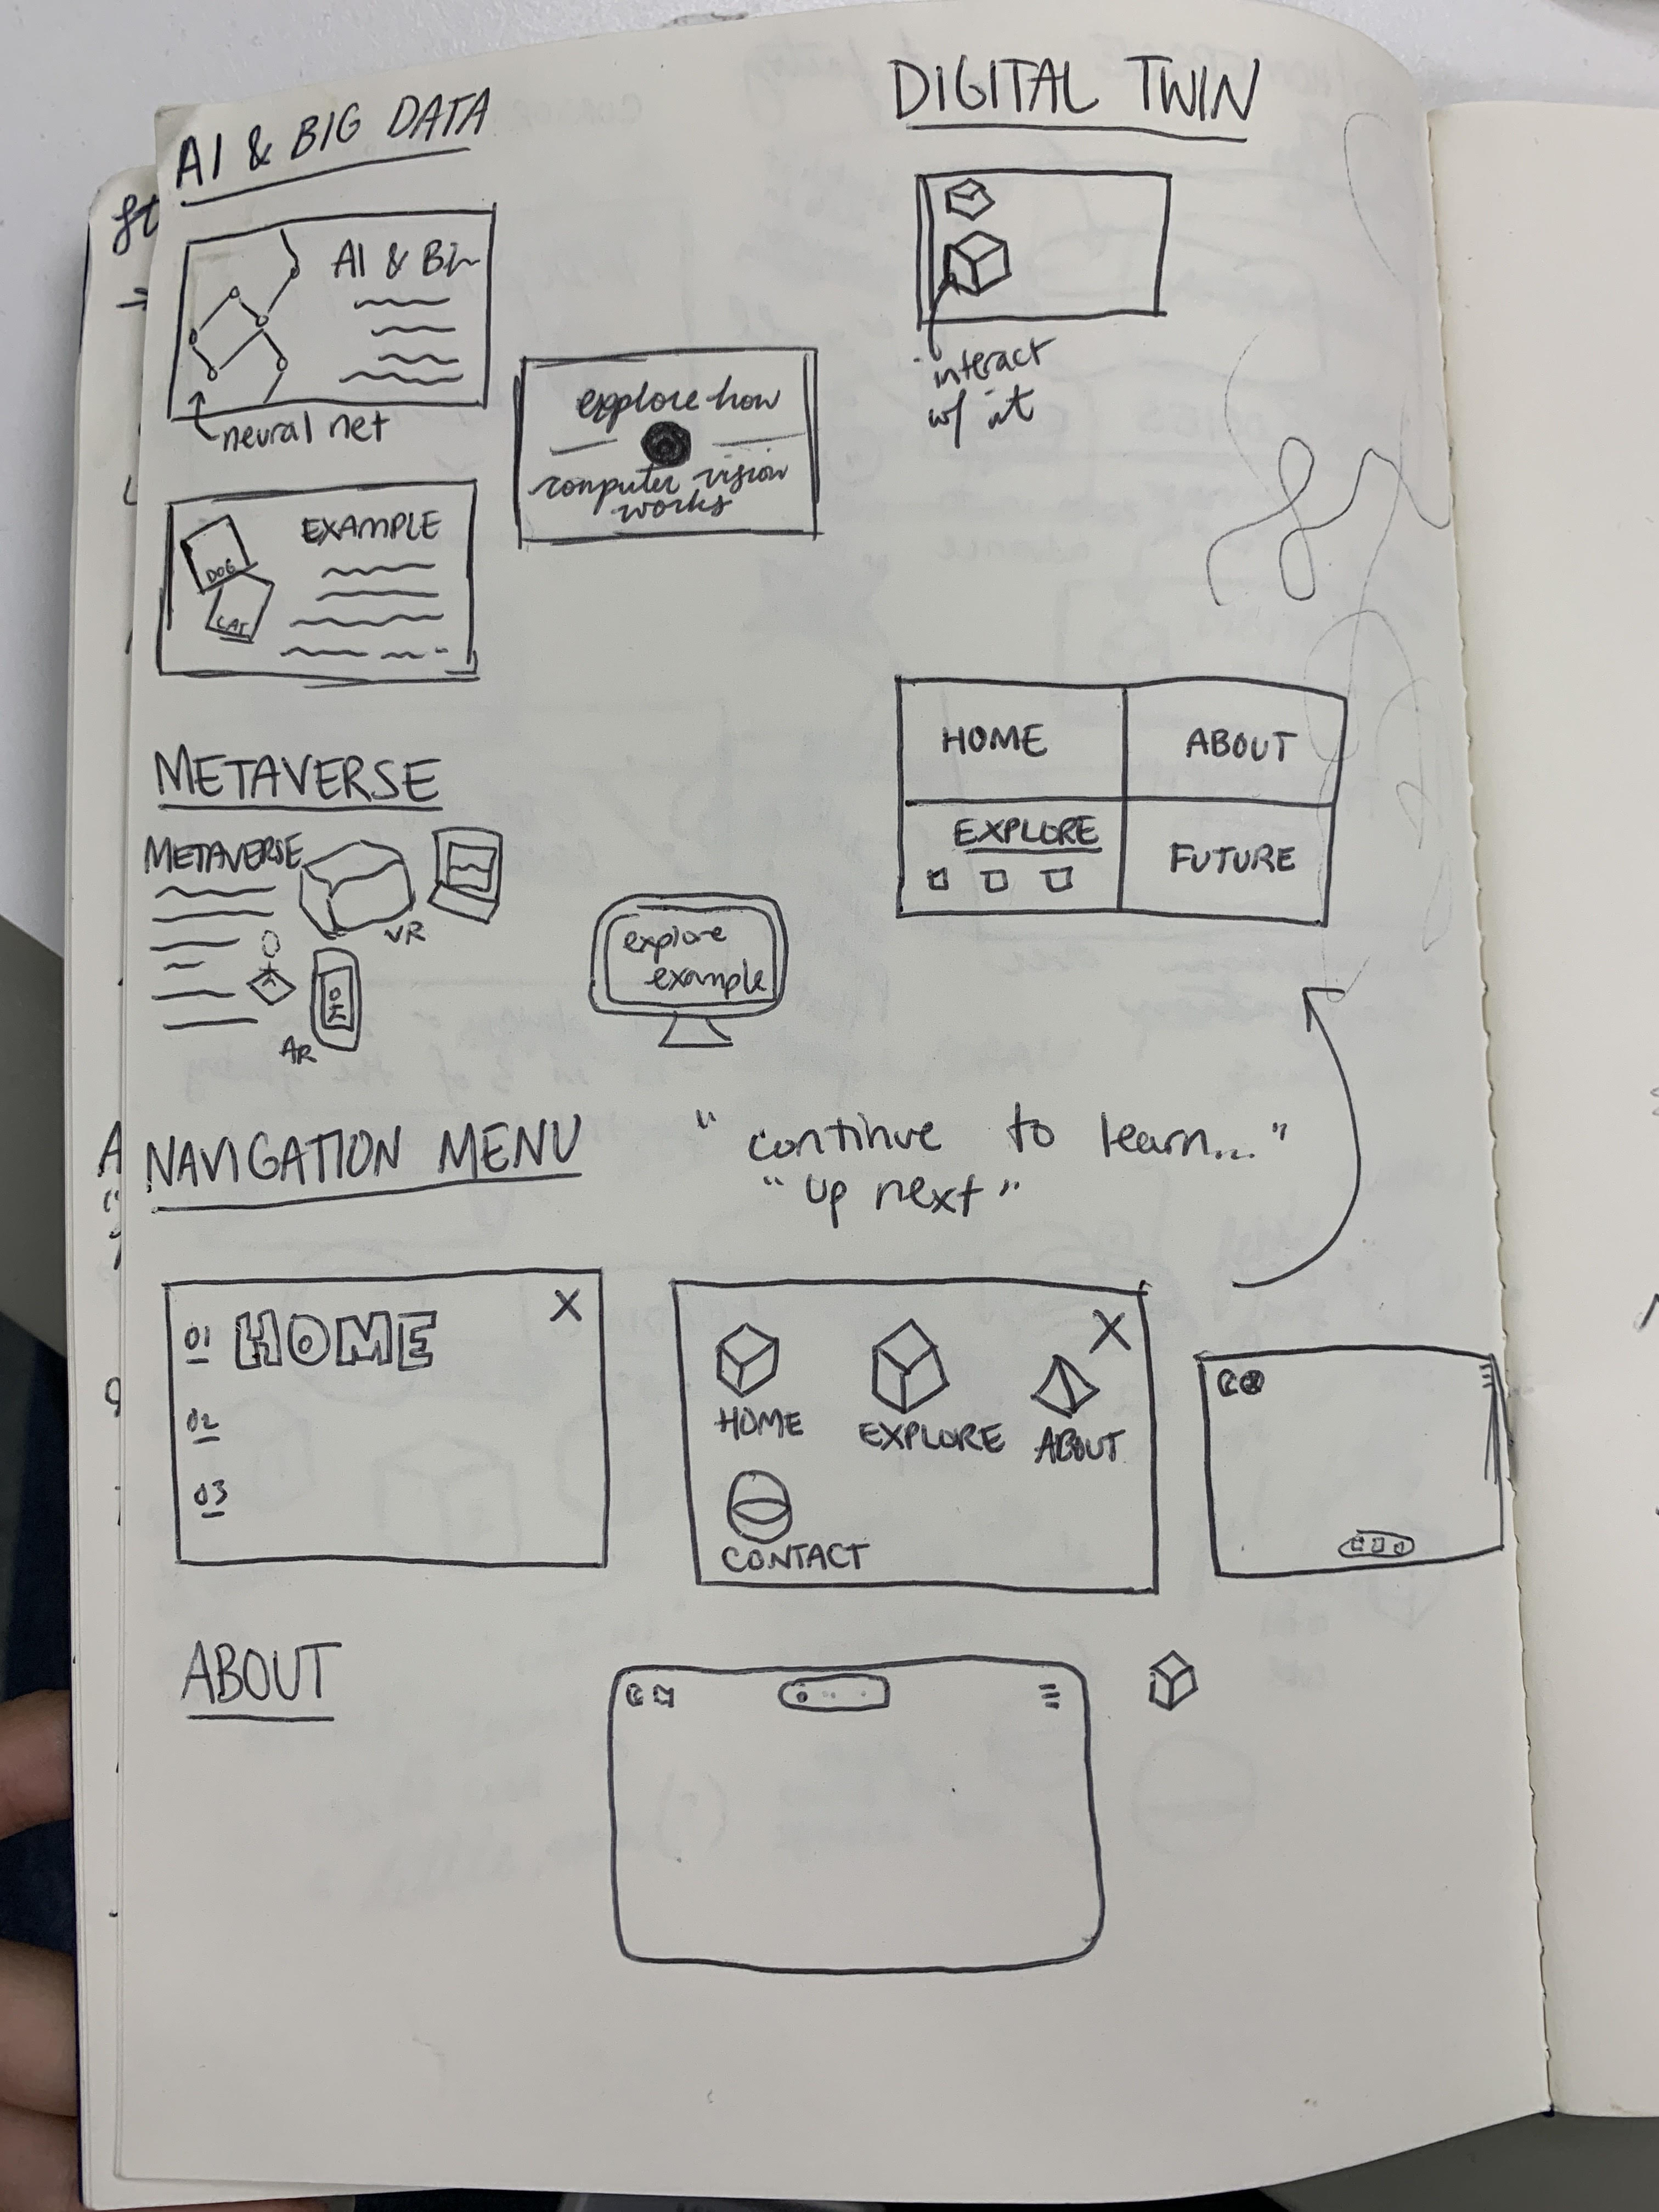 AI & BIG DATA
AI & Bi
neural net
explore how
computer vision
works
EXAMPLE
DOG
CAT
DIGITAL TWIN
interact
w/ it
METAVERSE
METAVERSE
VR
AR
explore
example
HOME
ABOUT
EXPLORE
FUTURE
NAVIGATION MENU
"continue to learn..."
"up next"
01 HOME X
02
03
X
HOME
EXPLORE
ABOUT
CONTACT
ABOUT